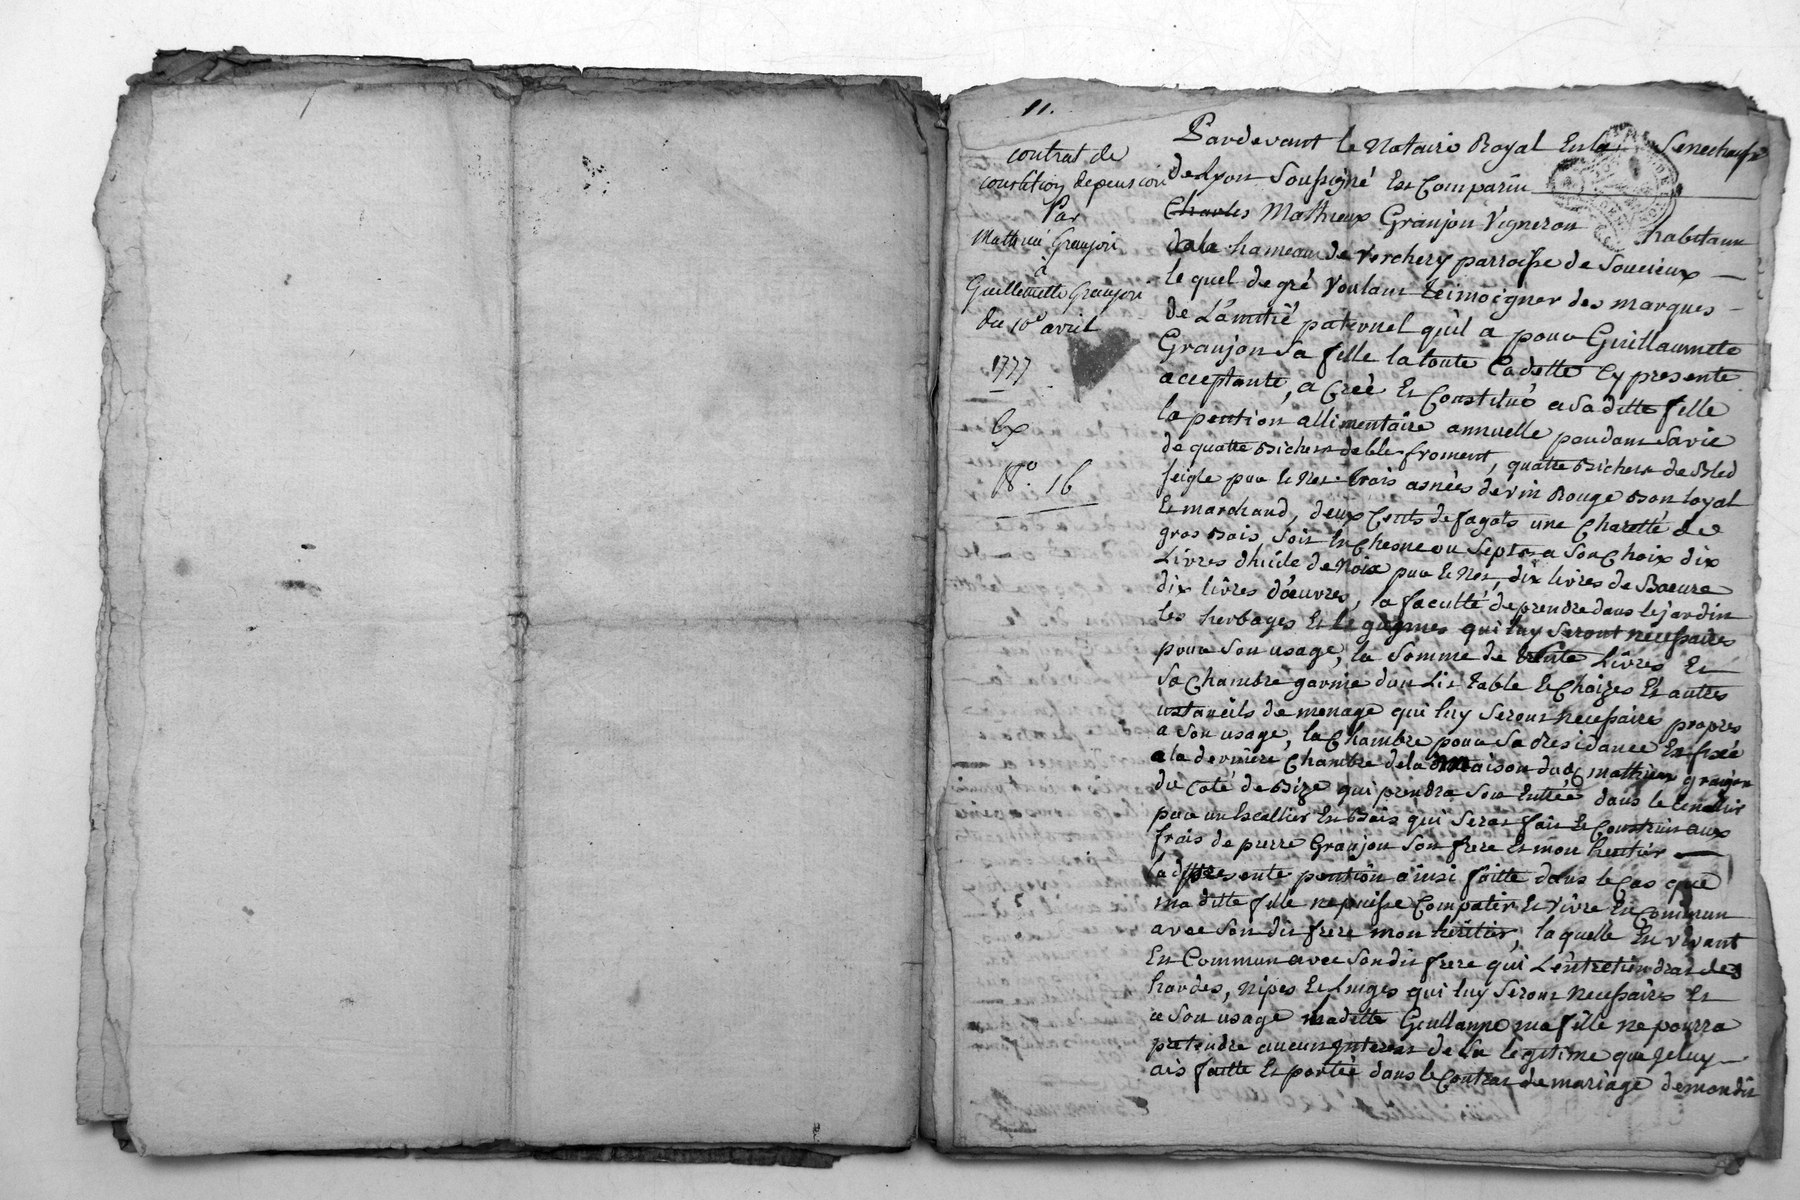 11.
contrat de
constition depension
Par
Mathieu Granjon
à
Guillemette Granjon
du 10e avril
1777
Ex
No. 16
Pardevant le Notaire Royal En la Senechaussé
de Lyon Soussigné Est Comparüe
Charles Mathieux Granjon Vigneron habitant
dala hameau de Verchery parroisse de Soucieux
le quel de gré Voulant teimoigner des marques
de L'amitié paternel qu'il a pour Guillaumette
Granjon Sa fille la toute Cadette Cy presente
acceptante, a Creé Et Constitué a Sa ditte fille
la pention allimentaire annuelle pandant Sa vie
de quatre Bichets de bled froment, quatre Bichets de Bled
seigle pur Et Net trois asnées de vin Rouge Bon Loyal
Et marchand, deux Cents de fagots une Charetté de
gros Bois, Soit En Chesne ou Septs a Son Choix dix
Livres d'huile de Noix pur Et Net, dix livres de Baeure
dix livres d'œuvres, la faculté de prendre dans le jardin
les herbages Et legugmes qui luy Seront necessaires
pour Son usage, la Somme de trente Livres Et
Sa Chambre garnie d'un Lit table Et Chaizes Et autres
ustancils de menage qui luy Seront necessaire propres
a Son usage, la Chambre pour Sa Residance Est fixée
a la derniere Chambre de la Maison dud mathieu granjon
du Coté de Bize qui prendra Son Entrée dans le Cenatier
par un Escallier En Bois qui Serat fait Et Construit aux
frais de pierre Granjon Son frere Et mon heritier
lad presente pention ainsi faitte dans le Cas que
ma ditte fille ne puisse Compatir Et Vivre En Commun
avec Son dit frere mon héritier, laquelle En vivant
En Commun avec Son dit frere qui L'entretiendrat des
hardes, nipes Et linges qui luy Seront Necessaires Et
a Son usage madette Guillaume ma fille ne pourra
pretendre aucun interest de Sa legitime que je luy
ais faitte Et portée dans le Contrat de mariage de mon dit